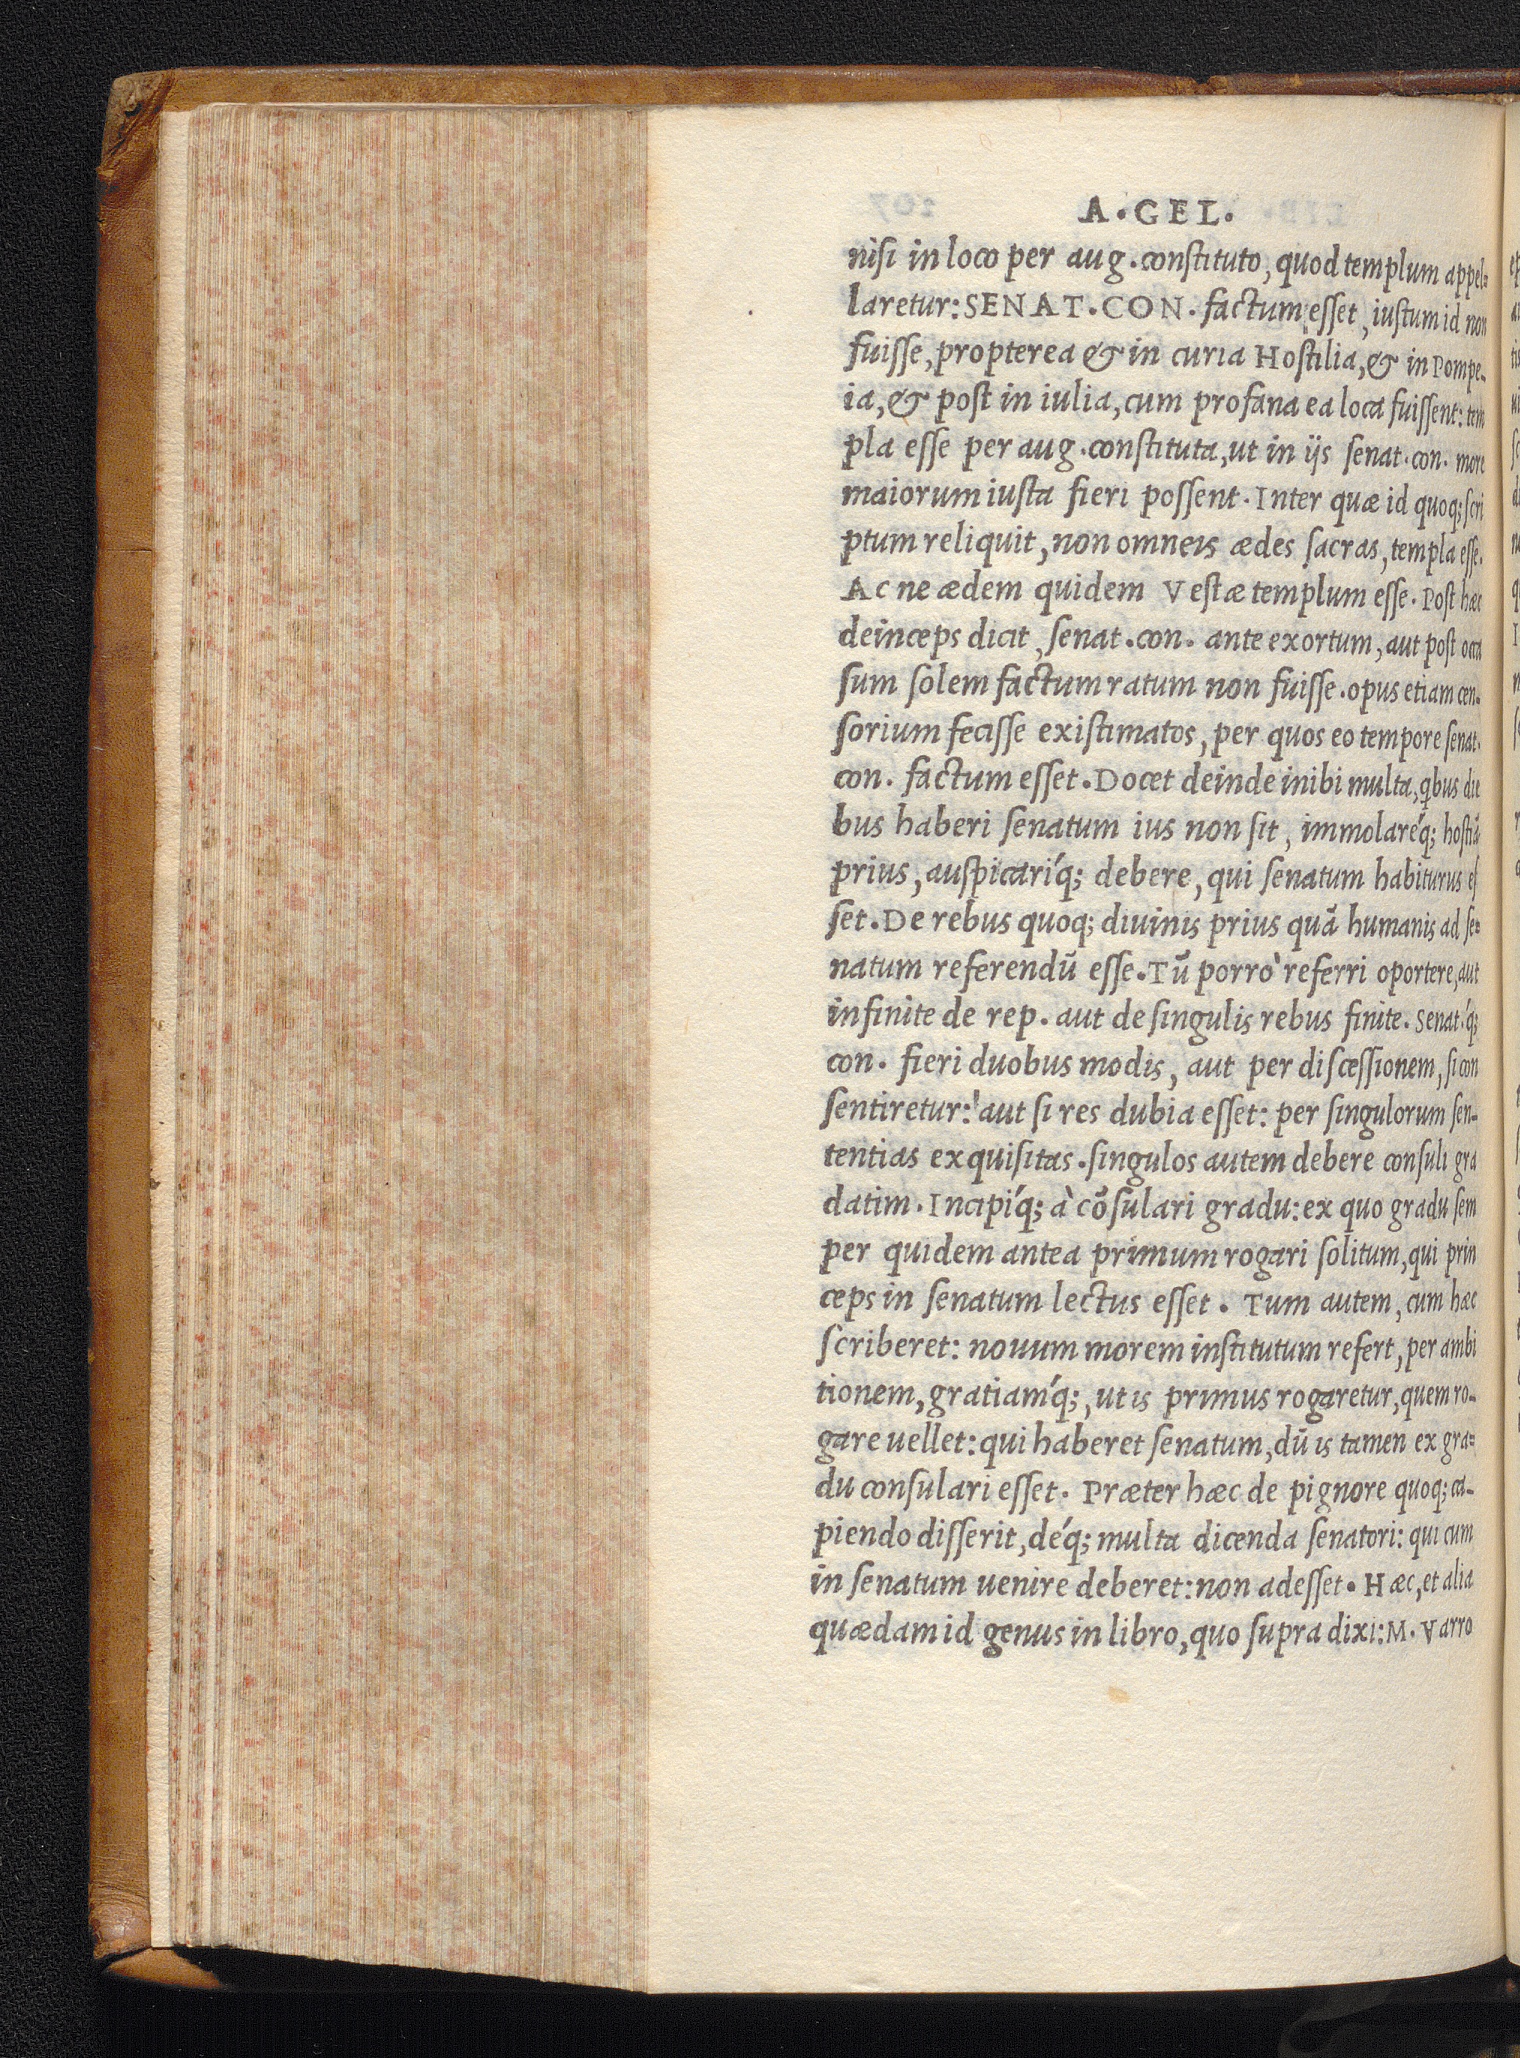 A. GEL.
nisi in loco per aug. constituto, quod templum appel-
laretur: SENAT. CON. factum esset, iustum id non
fuisse, propterea & in curia Hostilia, & in Pompe-
ia, & post in iulia, cum profana ea loca fuissent: tem
pla esse per aug. constituta, ut in ijs senat. con. more
maiorum iusta fieri possent. Inter quæ id quoq; scri
ptum reliquit, non omneis ædes sacras, templa esse.
Ac ne ædem quidem Vestæ templum esse. Post hæc
deinceps dicit, senat. con. ante exortum, aut post occa
sum solem factum ratum non fuisse. opus etiam cen-
sorium fecisse existimatos, per quos eo tempore senat.
con. factum esset. Docet deinde inibi multa, qbus die
bus haberi senatum ius non sit, immolaréq; hostiā
prius, auspicaríq; debere, qui senatum habiturus es
set. De rebus quoq; diuinis prius quā humanis ad se-
natum referendū esse. Tū porrò referri oportere, aut
infinite de rep. aut de singulis rebus finite. Senat.q́;
con. fieri duobus modis, aut per discessionem, si con
sentiretur: aut si res dubia esset: per singulorum sen-
tentias exquisitas. singulos autem debere consuli gra
datim. Incipíq; à cōsulari gradu: ex quo gradu sem
per quidem antea primum rogari solitum, qui prin
ceps in senatum lectus esset. Tum autem, cum hæc
scriberet: nouum morem institutum refert, per ambi
tionem, gratiamq́;, ut is primus rogaretur, quem ro-
gare uellet: qui haberet senatum, dū is tamen ex gra-
du consulari esset. Præter hæc de pignore quoq; ca-
piendo disserit, déq; multa dicenda senatori: qui cum
in senatum uenire deberet: non adesset. Hæc, et alia
quædam id genus in libro, quo supra dixi: M. Varro